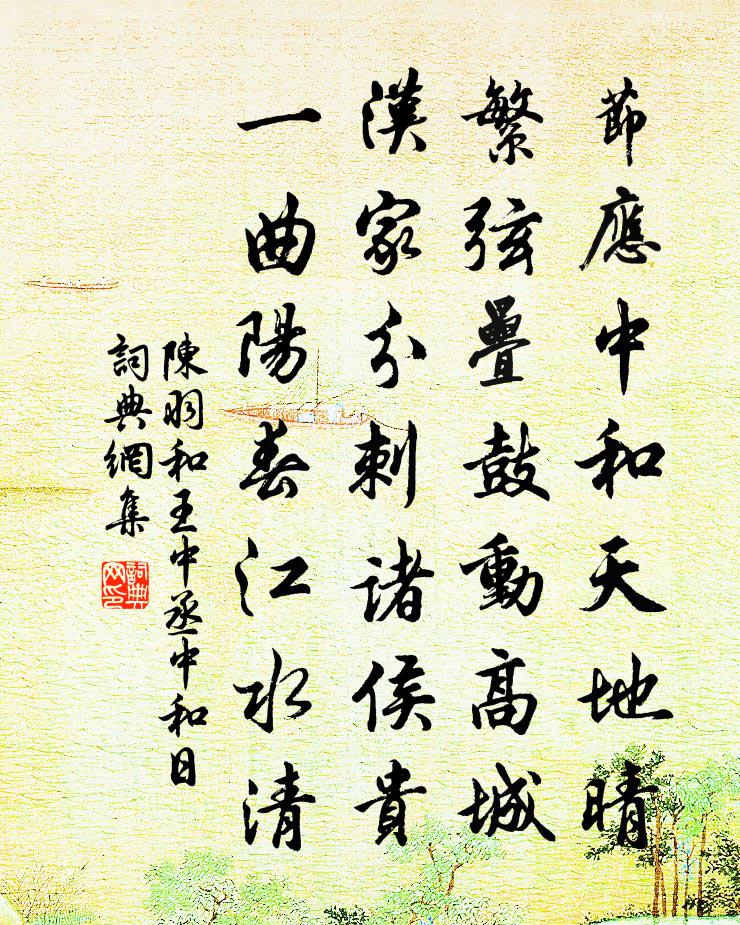 節應中和天地晴
繁弦疊鼓動高城
漢家分刺諸侯貴
一曲陽春江水清
陳羽和王中丞中和日
詞典網集
詞典网印